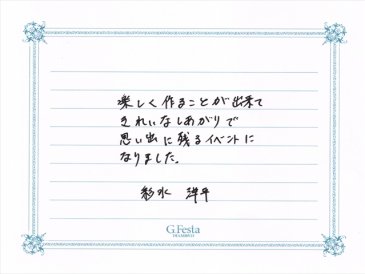 楽しく作ることが出来て
きれいなしあがりで
思い出に残るイベントに
なりました。
洋平
G.Festa